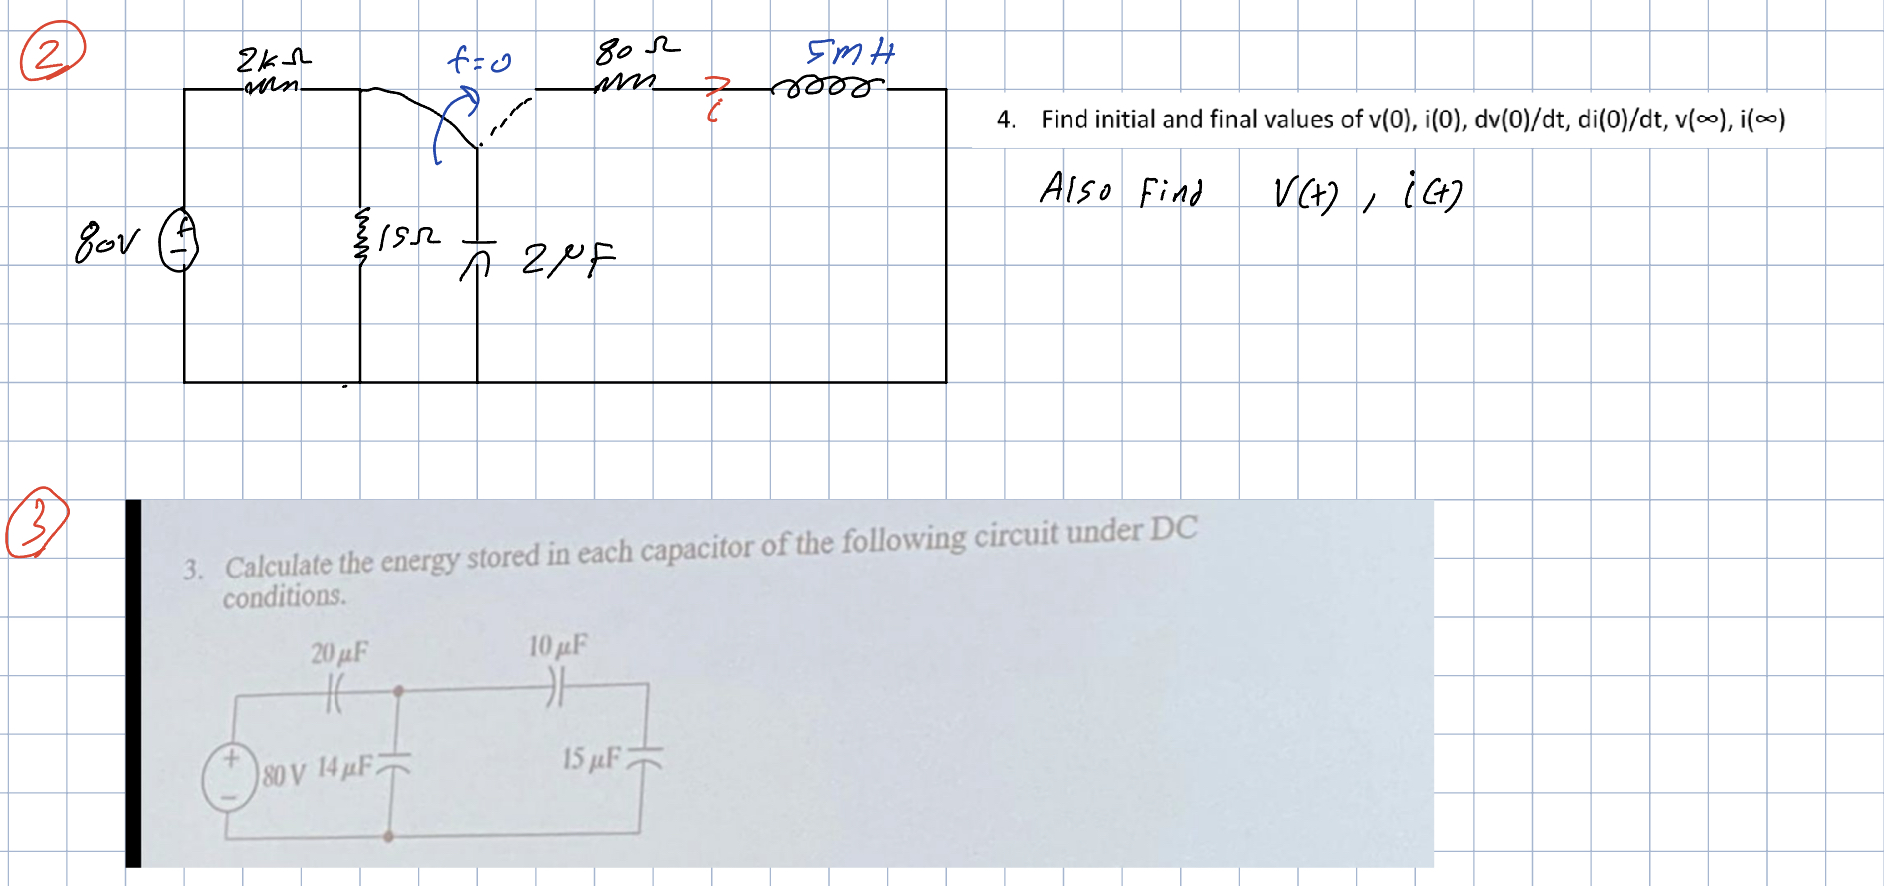 2
2kΩ
t=0
80 Ω
5mH
i
4. Find initial and final values of v(0), i(0), dv(0)/dt, di(0)/dt, v(∞), i(∞)
Also Find V(t), i(t)
80V
+
-
15Ω
2μF
3
3. Calculate the energy stored in each capacitor of the following circuit under DC
conditions.
20 μF
10 μF
+
-
80 V
14 μF
15 μF